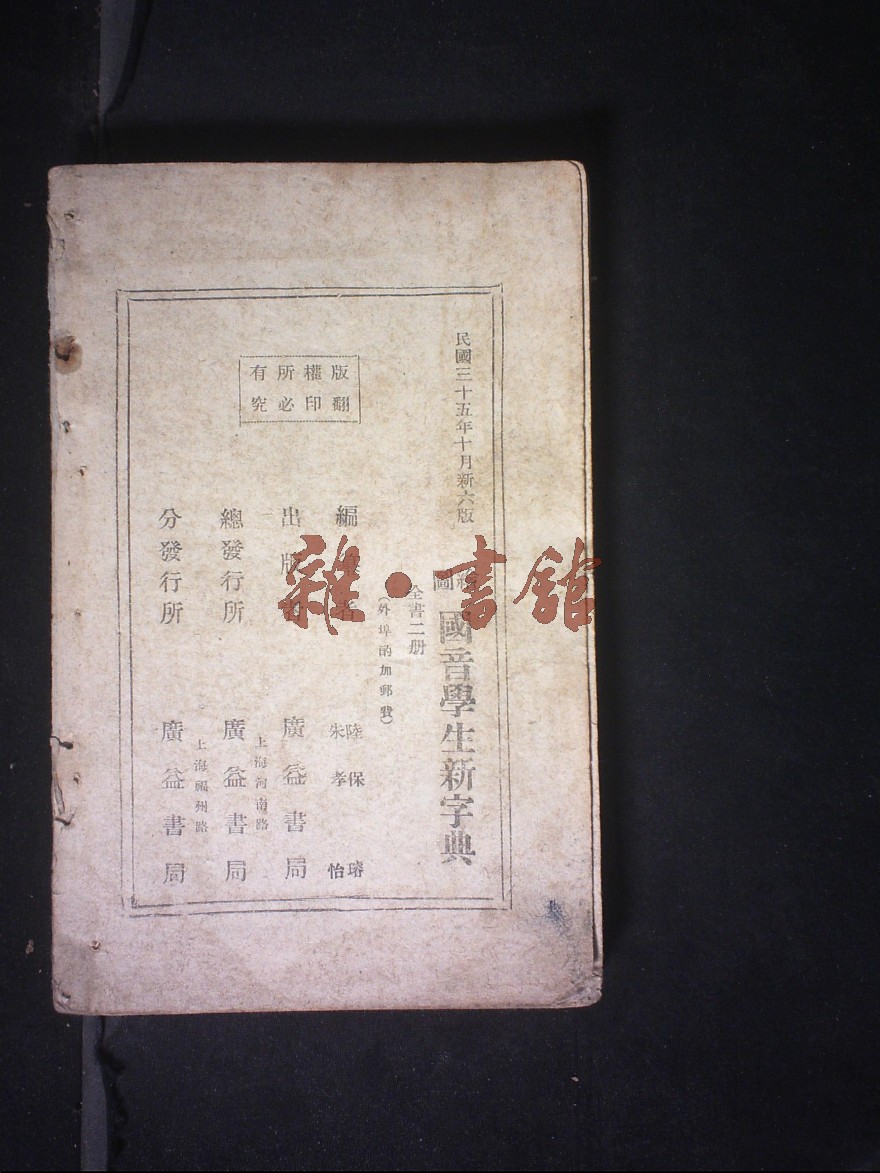 民國三十五年十月新六版
繪圖國音學生新字典
全書二册
(外埠酌加郵費)
版權所有
翻印必究
編者
陸保璿
朱孝怡
出版者
廣益書局
總發行所
上海河南路
廣益書局
分發行所
上海福州路
廣益書局
雜·書館